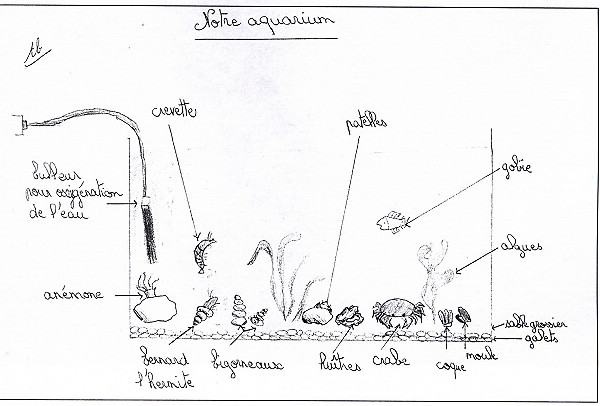 Notre aquarium
crevette
patelles
bulleur
pour oxygénation
de l'eau
gobie
algues
anémone
sable grossier
galets
bernard
l'hermite
bigorneaux
huîtres
crabe
coque
moule